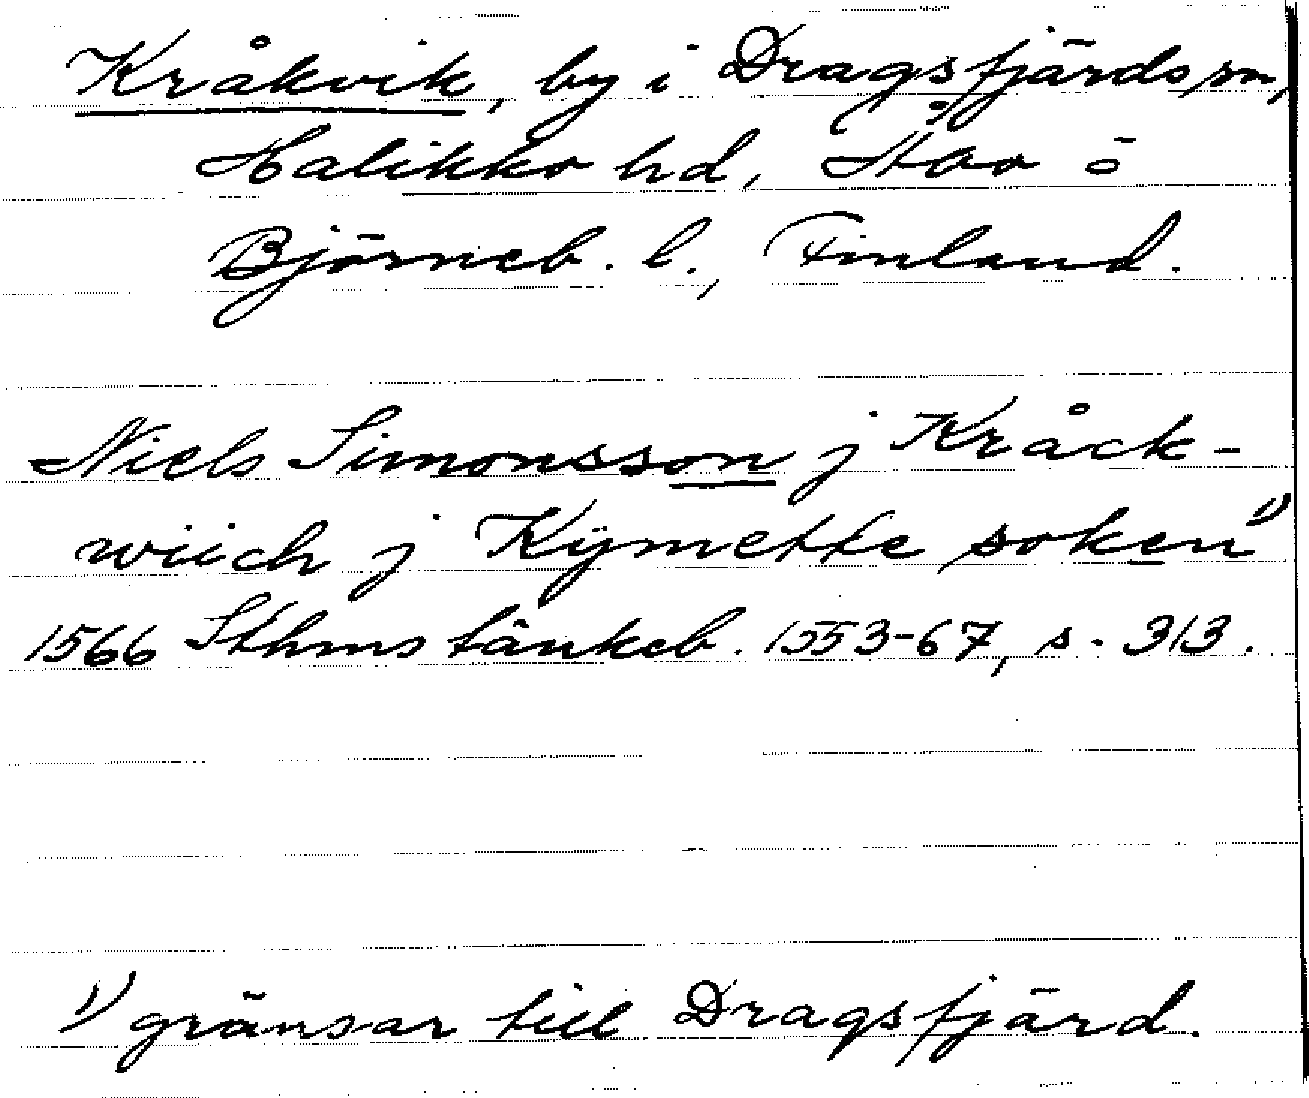 Kråkvik, by i Dragsfjärds sn,
Halikko hd, Åbo o
Björneb. l., Finland.
Niels Simonsson j Kråck-
wiich j Kymette soken 1)
1566 Sthms tänkeb. 1553-67, s. 313.
1) gränsar till Dragsfjärd.